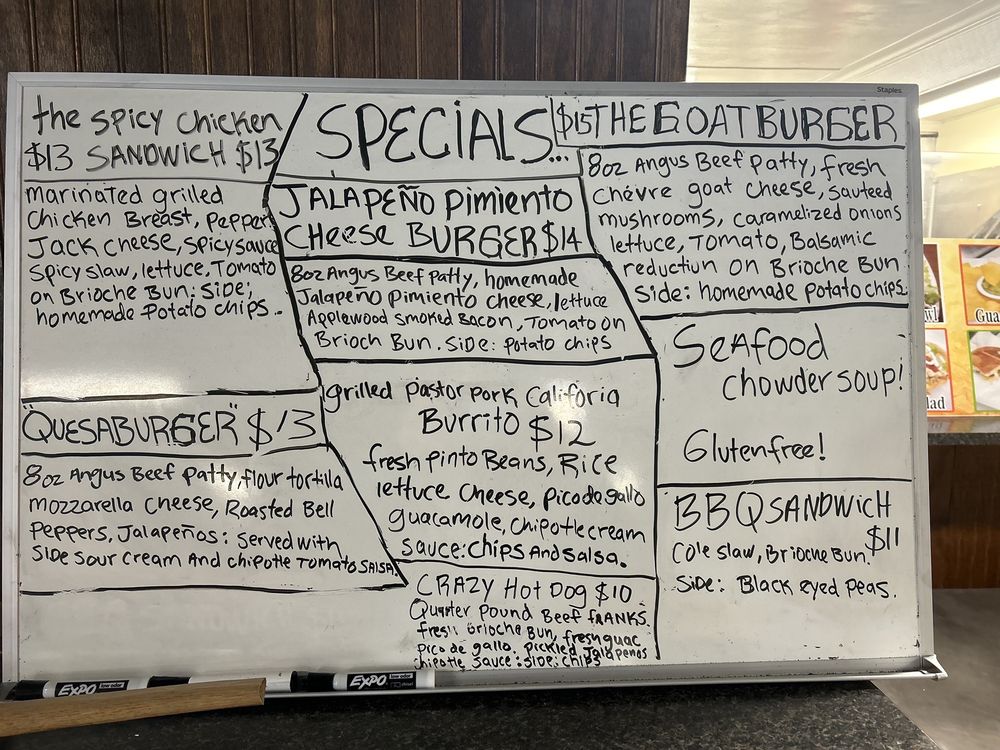 Staples
the spicy chicken
$13 SANDWICH $13
marinated grilled
chicken Breast, Pepper
Jack cheese, spicy sauce
spicy slaw, lettuce, Tomato
on Brioche Bun: SiDe;
homemade Potato chips.
"QUESABURGER" $13
8oz Angus Beef patty, flour tortilla
mozzarella Cheese, Roasted Bell
Peppers, Jalapeños: Served with
Side sour cream And chipotle Tomato SALSA.
SPECIALS...
JALAPEÑO pimiento
CHEESE BURGER $14
8oz Angus Beef patty, homemade
Jalapeño pimiento cheese, lettuce
Applewood smoked Bacon, Tomato on
Brioch Bun. SiDe: potato chips
grilled pastor pork Califoria
Burrito $12
fresh pinto Beans, Rice
lettuce cheese, pico de gallo
guacamole, chipotle cream
sauce: chips And salsa.
CRAZY Hot Dog $10
Quarter Pound Beef fRANKS.
fresh Brioche Bun, fresh guac
pico de gallo, pickled Jalapenos
chipotle sauce: side: chips
$15 THE GOAT BURGER
8oz Angus Beef patty, fresh
Chévre goat cheese, sauteed
mushrooms, caramelized onions
lettuce, Tomato, Balsamic
reduction on Brioche Bun
Side: homemade potato chips.
Seafood
chowder soup!
Glutenfree!
BBQ SANDWICH
$11
Cole slaw, Brioche Bun.
Side: Black eyed peas.
EXPO
low odor
EXPO
low odor
wl
Gua
lad